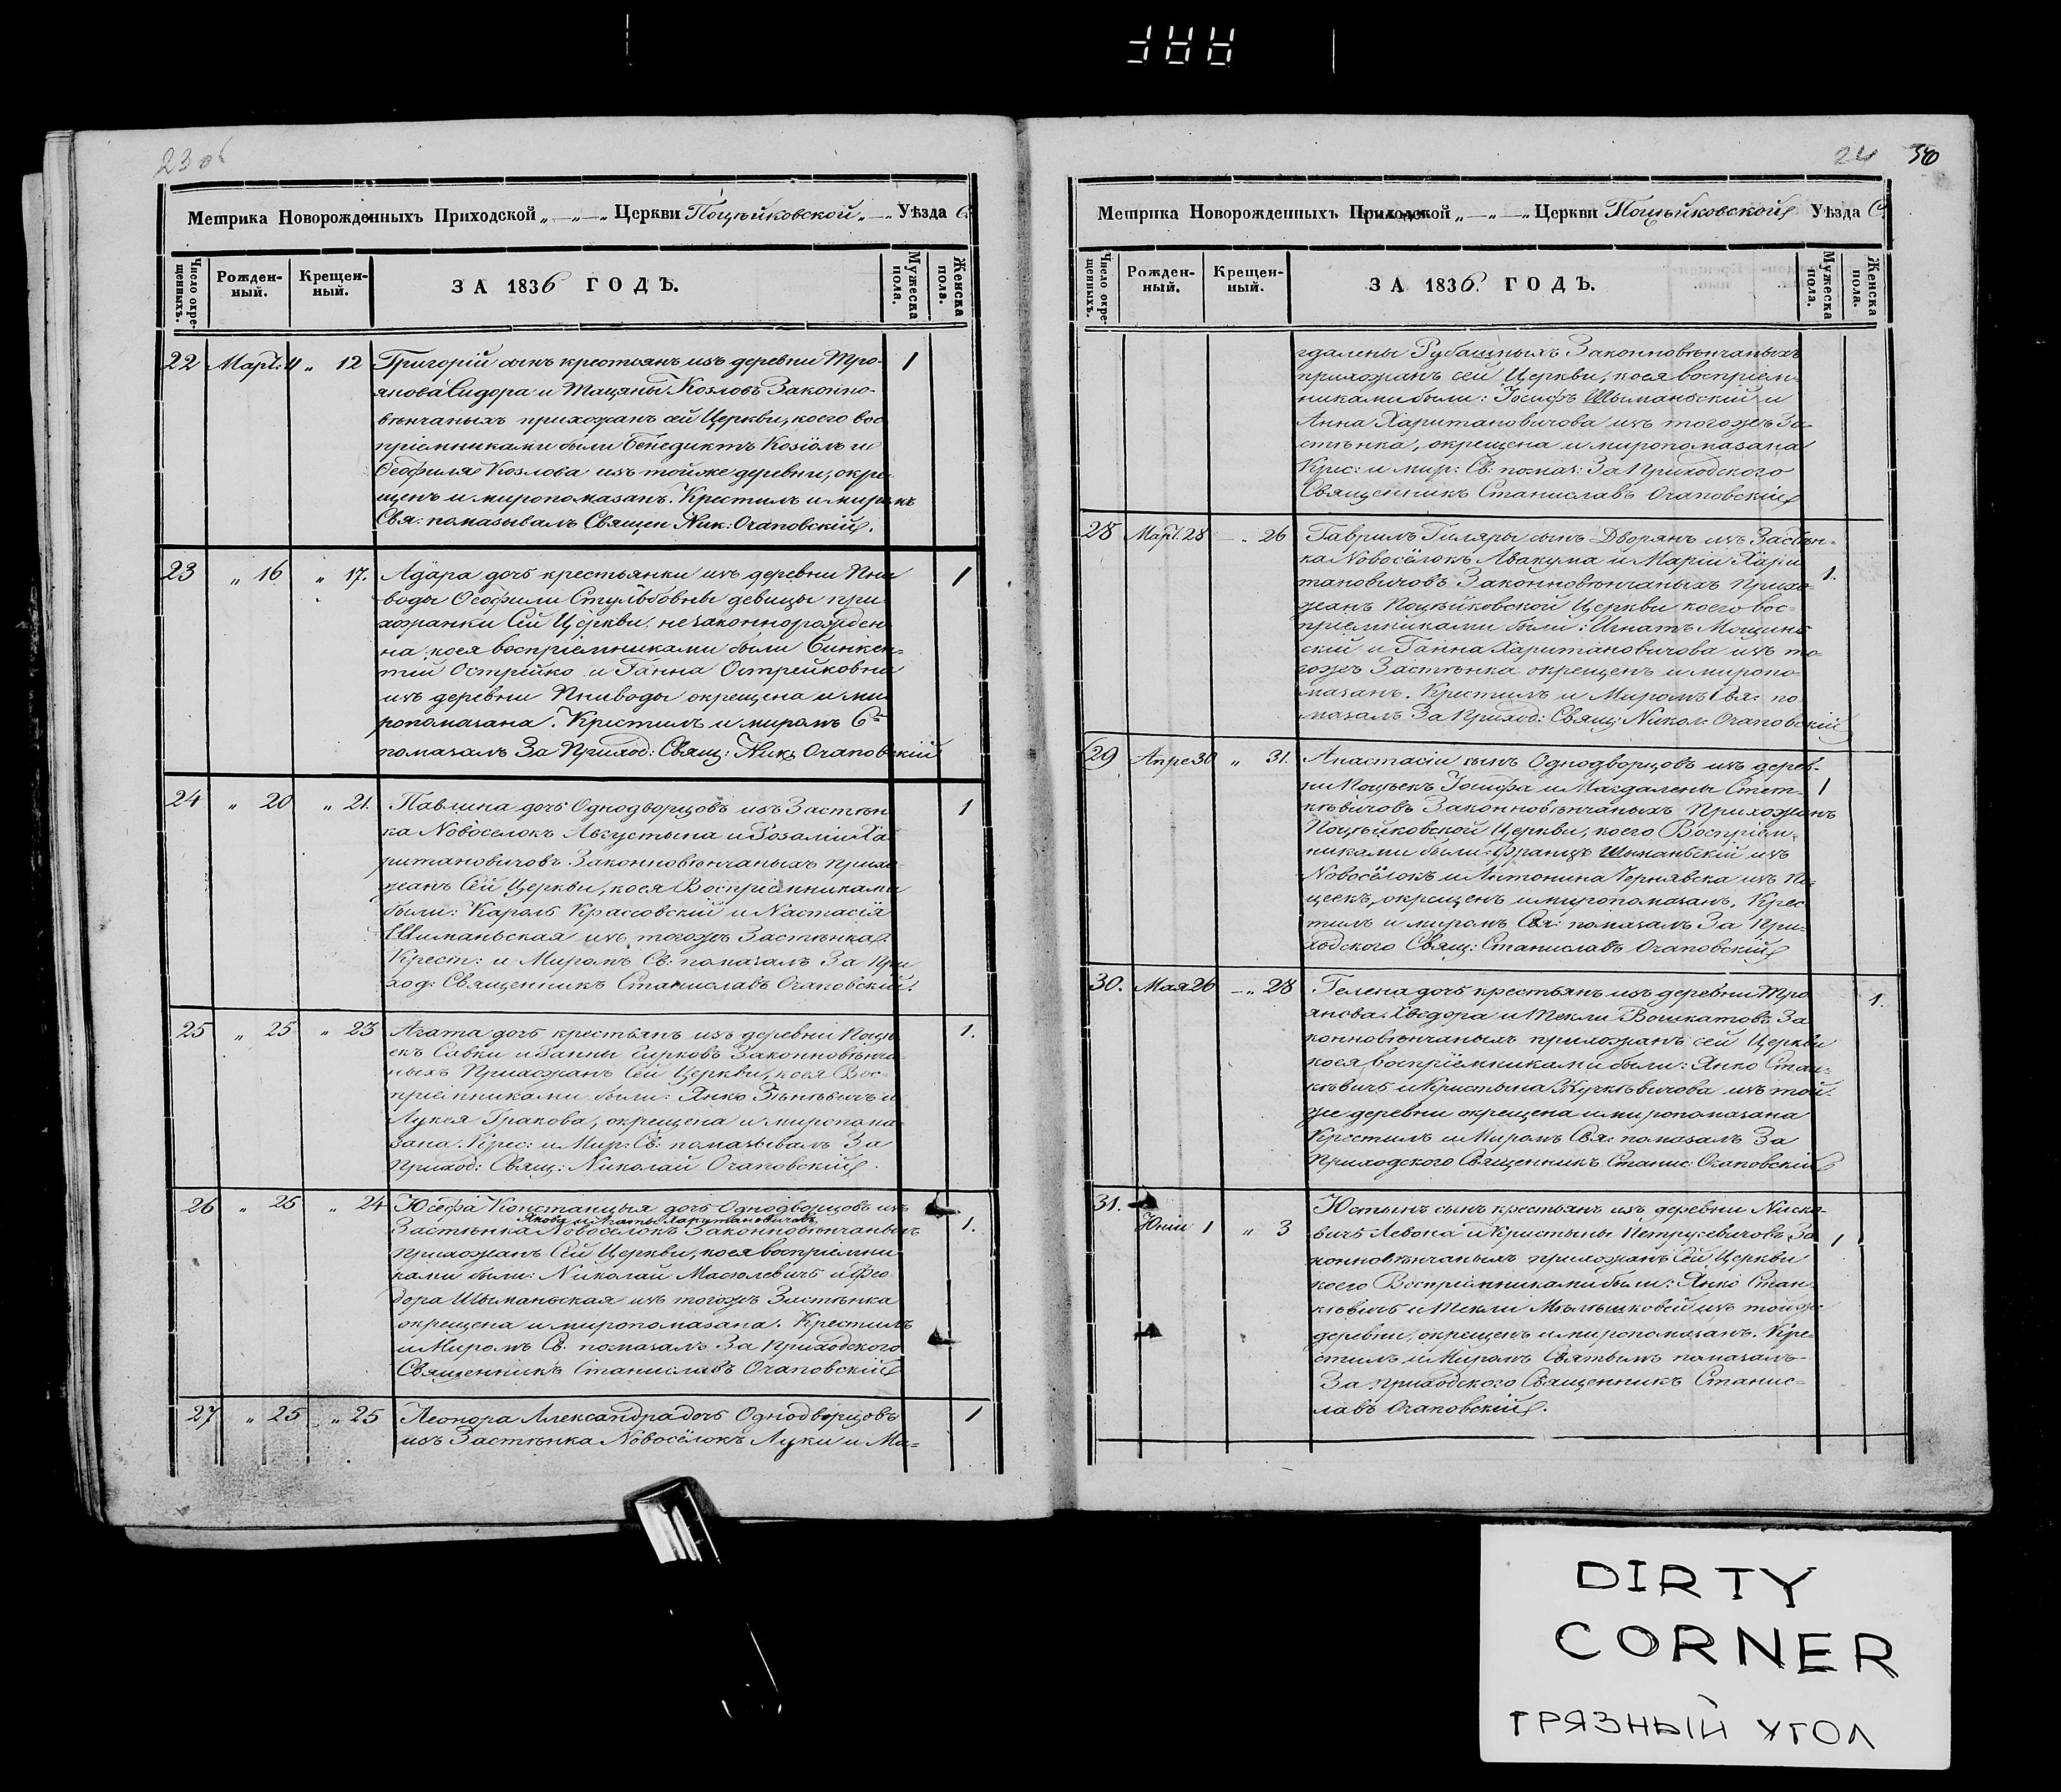 23 об
Метрика Новорожденныхъ Приходской „—„—„ Церкви Поцѣйковской „—„ Уѣзда С.
Число окре-
щенныхъ.
Рожден-
ный.
Крещен-
ный.
ЗА 1836 ГОДЪ.
Мужеска
пола.
Женска
пола.
22 Март: 11 „ 12 Григорій сынъ крестьянъ изъ деревни Тро- 1
янова Сидора и Тацяны Козловъ Законно-
вѣнчаныхъ прихожанъ сей Церкви, коего вос
пріемниками были Бенедиктъ Козіолъ и
Ѳеофиля Козлова изъ тойже деревни, окре
щенъ и миропомазанъ. Крестилъ и миромъ
Свя: помазывалъ Священ Ник: Очаповскій.
23 „ 16 „ 17. Адара дочь крестьянки изъ деревни Пни 1
воды Ѳеофили Стульбовны девицы при
хожанки Сей Церкви незаконнорожден
на коея воспріемниками были Винкен-
тій Острейко и Ганна Острейковна
изъ деревни Пниводы окрещена и ми
ропомазана. Крестилъ и миромъ С:
помазалъ За Приход: Свящ: Ник: Очаповскій
24 „ 20 „ 21. Павлина дочь Однодворцовъ изъ Застѣн 1
ка Новоселокъ Августына и Розаліи Ха
ритановичовъ Законновѣнчаныхъ Прихо
жанъ Сей Церкви, коея Воспріемниками
были: Кароль Красовскій и Настасія
Шиманьская изъ тогожъ Застѣнка.
Крест: и Миромъ Св: помазалъ За При
ход: Священникъ Станиславъ Очаповскій.
25 „ 25 „ 23 Агата дочь крестьянъ изъ деревни Поцѣ 1.
екъ Савки и Ганны Законновѣнча
ныхъ Прихожанъ Сей Церкви, коея Вос-
пріемниками были: Янко и
Лукея Гракова, окрещена и миропома
зана. Крес: и Мир: Св: помазывалъ За
Приход: Свящ: Николай Очаповскій.
26 „ 25 „ 24 Юсефа Констанцыя дочь Однодворцовъ изъ
Якова и Агаты Харитановичовъ
Застѣнка Новоселокъ Законновѣнчаныхъ 1.
Прихожанъ Сей Церкви, коея воспріемни
ками были: Николай Масюлевичъ и Фео
дора Шыманьская изъ тогожъ Застѣнка
окрещена и миропомазана. Крестилъ
и Миромъ Св. помазалъ За Приходского
Священникъ Станиславъ Очаповскій
27 „ 25 „ 25 Леонора Александра дочь Однодворцовъ 1
изъ Застѣнка Новосёлокъ Луки и Ма=
24 30
Метрика Новорожденныхъ Приходской „—„—„ Церкви Поцѣйковской Уѣзда С.
Число окре-
щенныхъ.
Рожден-
ный.
Крещен-
ный.
ЗА 1836. ГОДЪ.
Мужеска
пола.
Женска
пола.
гдалены Рубашныхъ Законновѣнчаныхъ
прихожанъ сей Церкви, коея воспріем-
никами были: Іосифъ Шыманьскій и
Анна Харитановичова изъ тогожъ За-
стѣнка, окрещена и миропомазана
Крес: и мир: Св: помаз: За Приходского
Священникъ Станиславъ Очаповскій
28 Март. 28 —„ 26 Гаврилъ Гиляры сынъ Дворянъ изъ Застѣн-
ка Новосёлокъ Авакума и Маріи Хари 1.
тановичовъ Законновѣнчаныхъ Прихо-
жанъ Поцѣйковской Церкви коего вос-
пріемниками были: Игнатъ Мощинс
скій и Ганна Харитановичова изъ то-
гожъ Застѣнка окрещенъ и миропо-
мазанъ. Крестилъ и Миромъ Свя: по
мазалъ За Приход: Свящ: Никол: Очаповскій
29 Апре 30 „ 31. Анастасіи сынъ Однодворцовъ изъ дерев-
ни Поцѣекъ Іосифа и Магдалены Стет- 1
кѣвичовъ Законновѣнчаныхъ Прихожанъ
Поцѣйковской Церкви, коего Воспріем-
никами были: Францъ Шыманьскій изъ
Новосёлокъ и Антонина Чернявска изъ По-
цеекъ, окрещенъ и миропомазанъ. Крес
тилъ и миромъ Свя: помазалъ За При-
ходского Свящ: Станиславъ Очаповскій
30. Мая 26 —„ 28 Гелена дочь крестьянъ изъ деревни Тро 1.
янова Хведора и Текли Вошкатовъ За
конновѣнчаныхъ прихожанъ сей Церкви
коея воспріемниками были: Янко Стан-
кѣвичъ и Кристына Жучкѣвичова изъ той-
же деревни окрещена и миропомазана
Крестилъ и Миромъ Свя: помазалъ За
Приходского Священникъ Станис: Очаповскій
31. Юстынъ сынъ крестьянъ изъ деревни
Юнія 1 „ 3 вичъ Левона и Кристыны Петрусевичовъ За 1
конновѣнчаныхъ прихожанъ Сей Церкви
коего Воспріемниками были: Янко Стан-
кѣвичъ и Текли изъ тойже
деревни, окрещенъ и миропомазанъ. Кре-
стилъ и Миромъ Святымъ помазалъ
За приходского Священникъ Станис-
лавъ Очаповскій.
DIRTY
CORNER
ГРЯЗНЫЙ УГОЛ